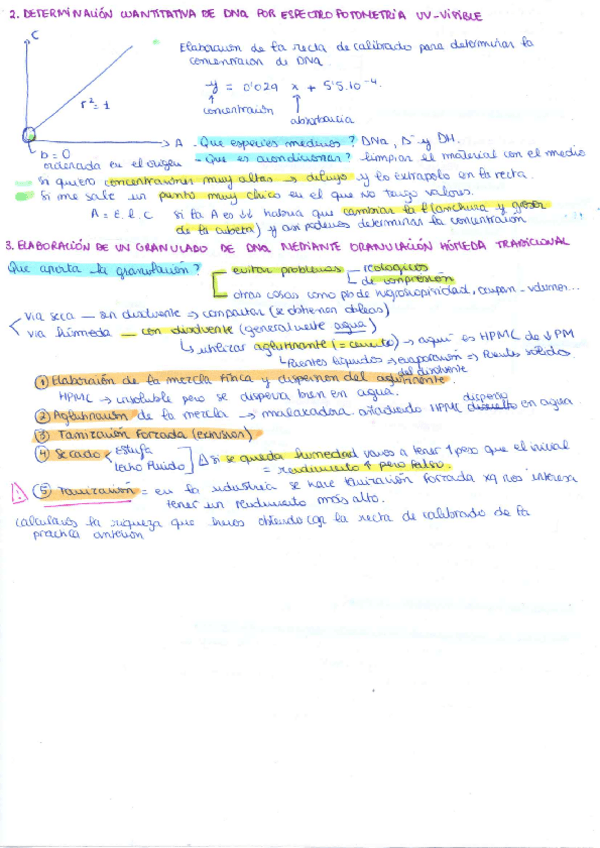 2. DETERMINACIÓN CUANTITATIVA DE DNa POR ESPECTROFOTOMETRÍA UV-VISIBLE
C
Elaboración de la recta de calibrado para determinar la
concentración de DNa.
y = 0'029 x + 5'5.10⁻⁴
r² = 1
concentración
absorbancia
A
b = 0
ordenada en el origen
- Que especies medimos? DNa, D⁻ y DH.
- Que es acondicionar? limpiar el material con el medio
- Si quiero concentraciones muy altas → diluyo y lo extrapolo en la recta.
- Si me sale un punto muy chico en el que no tengo valores.
A = ε. l. C si la A es ↓↓ habría que cambiar la l (anchura y grosor
de la cubeta) y así podemos determinar la concentración
3. ELABORACIÓN DE UN GRANULADO DE DNa MEDIANTE GRANULACIÓN HÚMEDA TRADICIONAL
Que aporta la granulación? evitar problemas reológicos
de compresión
otras cosas como pb de higroscopicidad, ocupan - volumen...
vía seca — sin disolvente → compactar (se obtienen obleas)
vía húmeda — con disolvente (generalmente agua)
utilizar aglutinante (= cemento) → aquí es HPMC de ↓ PM
Puentes líquidos → evaporación → Puentes sólidos.
del disolvente
① Elaboración de la mezcla física y dispersión del aglutinante.
HPMC → insoluble pero se dispersa bien en agua.
② Aglutinación de la mezcla → malaxadora. añadiendo HPMC disuelto disperso en agua
③ Tamización forzada (extrusión)
④ Secado Estufa
Lecho Fluido
⚠ Si se queda humedad vamos a tener ↑ peso que el inicial
= rendimiento ↑ pero falso.
⚠ ⑤ Tamización = en la industria se hace tamización forzada xq nos interesa
tener un rendimiento más alto.
calculamos la riqueza que hemos obtenido con la recta de calibrado de la
práctica anterior